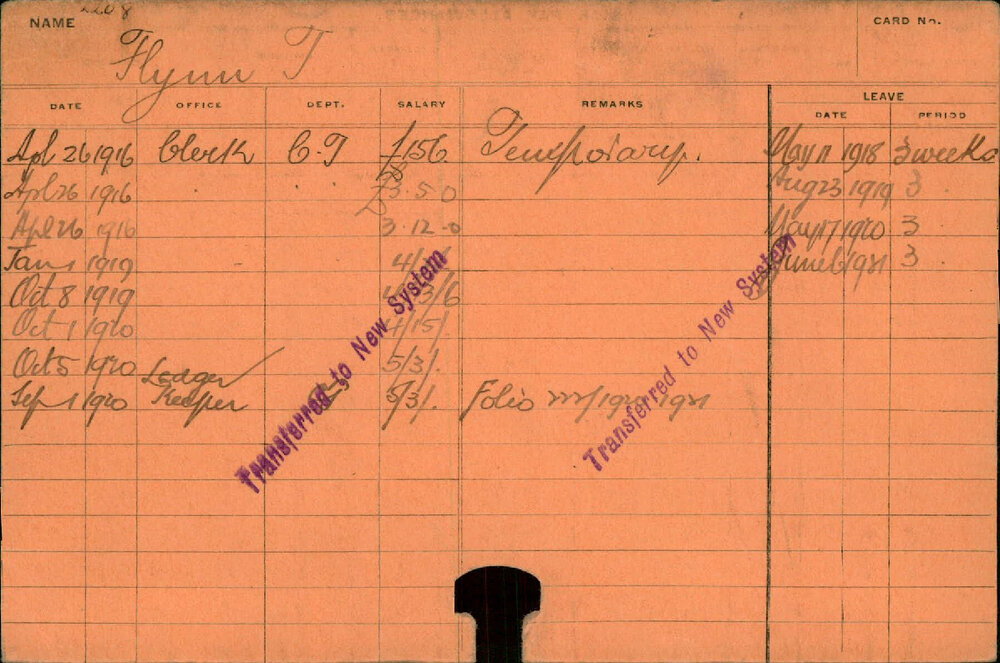 2208
NAME Flynn T CARD No.
DATE OFFICE DEPT. SALARY REMARKS LEAVE
DATE PERIOD
Apl 26 1916 Clerk C.T £156 Temporary. May 11 1918 3 weeks
Apl 26 1916 £3.5.0 Aug 23 1919 3
Apl 26 1916 3.12.0 May 17 1920 3
Jan 1 1919 June 6 1921 3
Oct 8 1919
Oct 1 1920 4/15/.
Oct 5 1920 5/3/.
Sep 1 1920 Ledger Keeper 5/3/. Folio 1921
Transferred to New System
Transferred to New System